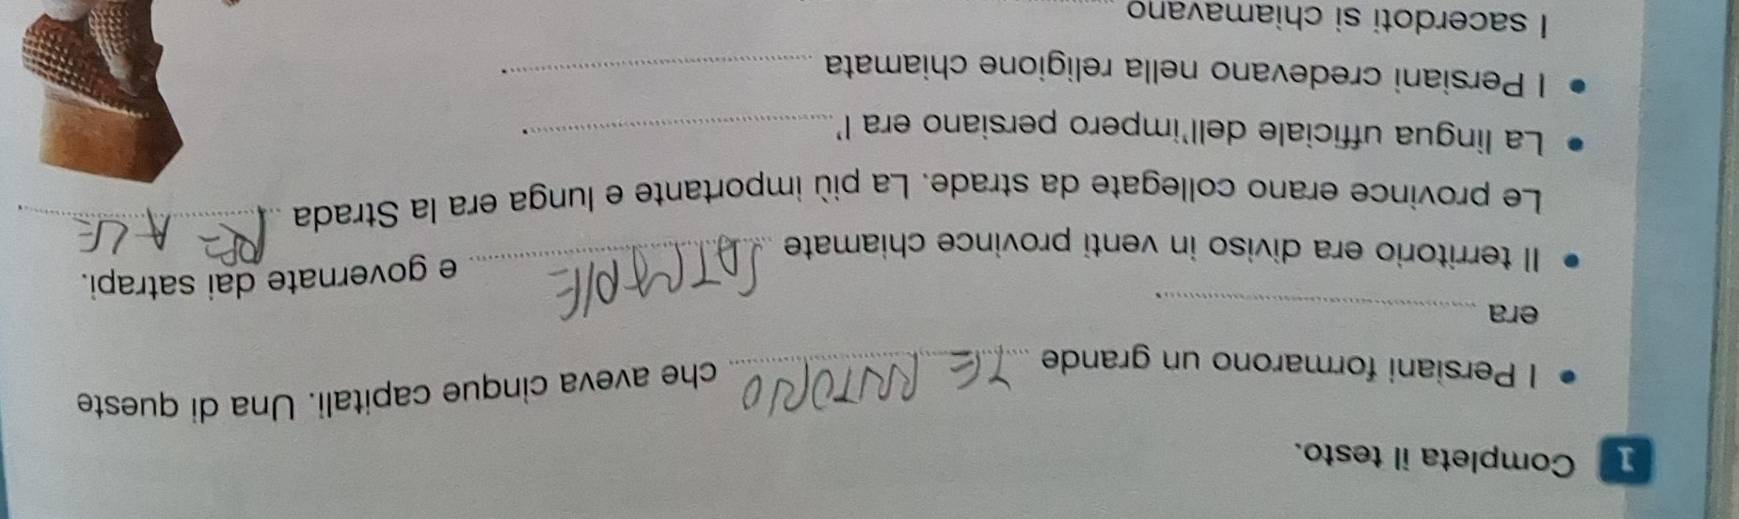 1 Completa il testo.
• I Persiani formarono un grande TERRITORIO che aveva cinque capitali. Una di queste
era ....................
• Il territorio era diviso in venti province chiamate SATRAPIE e governate dai satrapi.
Le province erano collegate da strade. La più importante e lunga era la Strada REALE.
• La lingua ufficiale dell'impero persiano era l'....................
• I Persiani credevano nella religione chiamata ....................
I sacerdoti si chiamavano